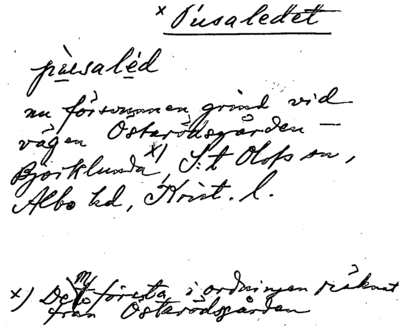 x Pusaledet
pùsalèd
nu försvunnen grind vid
vägen Österödsgården –
Björklunda x), S:t Olofs sn,
Albo hd, Krist. l.
x) Den första i ordningen räknat
från Österödsgården